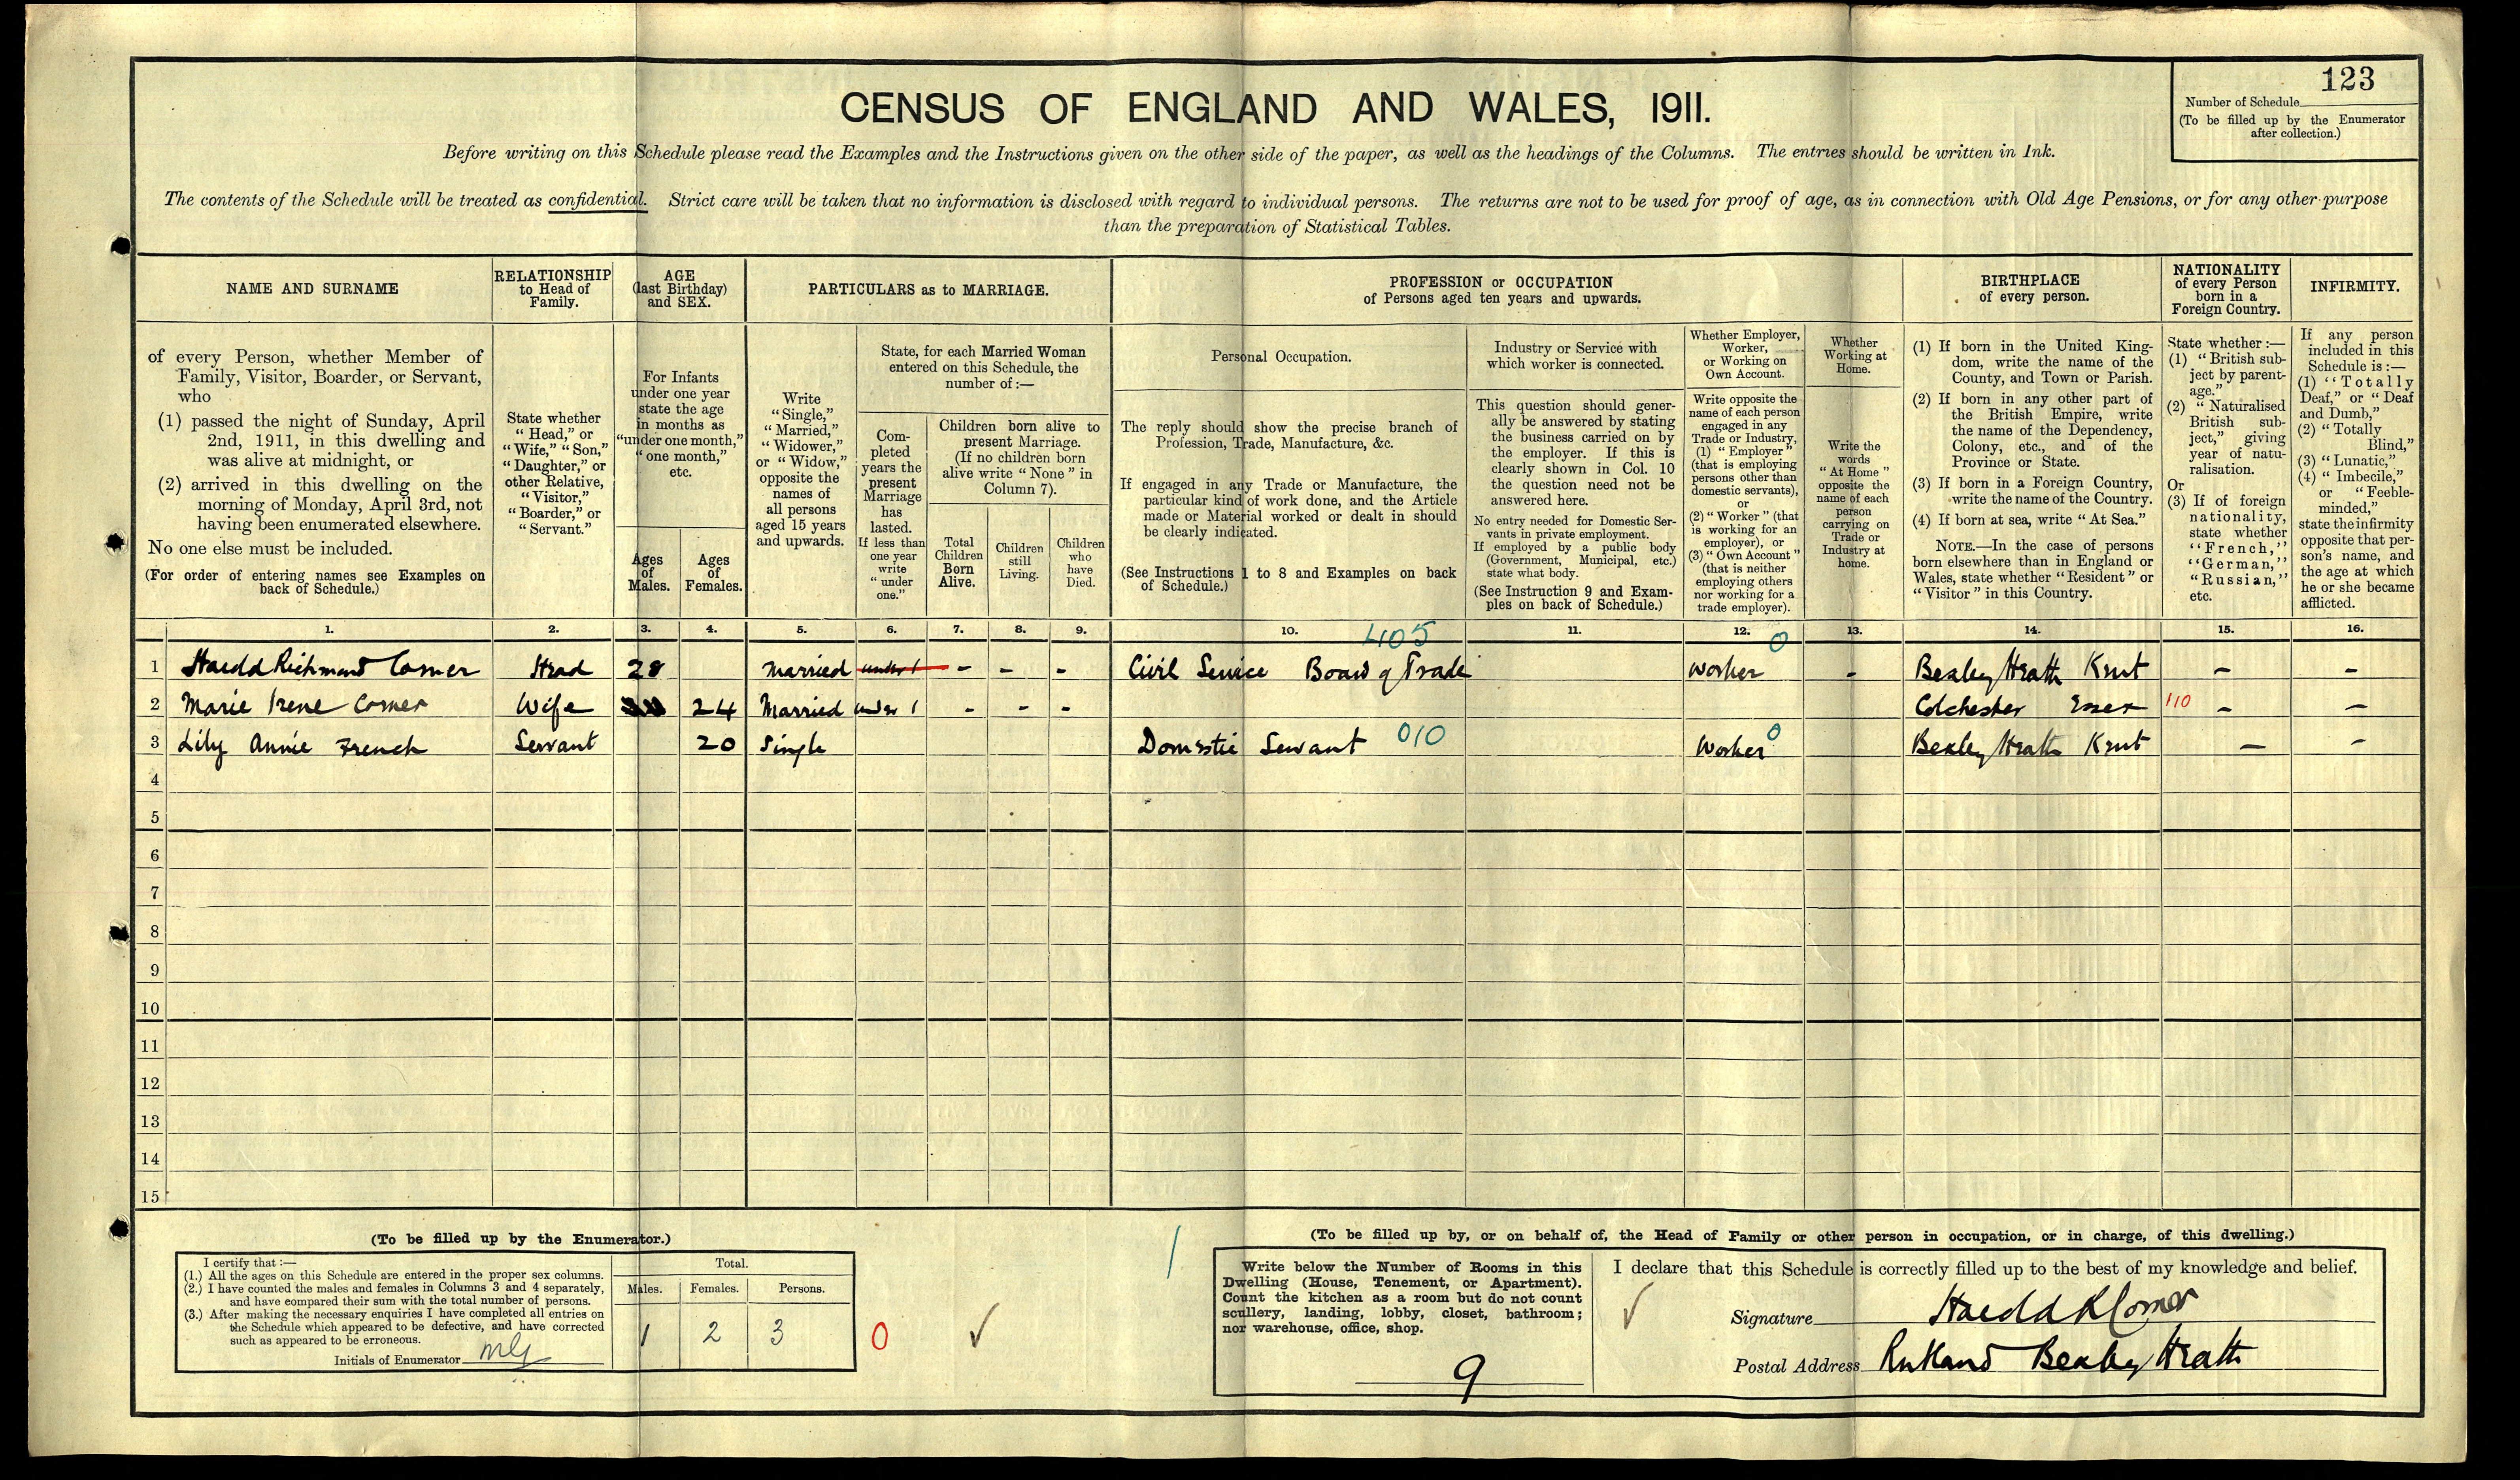 123
Number of Schedule
(To be filled up by the Enumerator
after collection.)
CENSUS OF ENGLAND AND WALES, 1911.
Before writing on this Schedule please read the Examples and the Instructions given on the other side of the paper, as well as the headings of the Columns. The entries should be written in Ink.
The contents of the Schedule will be treated as confidential. Strict care will be taken that no information is disclosed with regard to individual persons. The returns are not to be used for proof of age, as in connection with Old Age Pensions, or for any other purpose
than the preparation of Statistical Tables.
NAME AND SURNAME
of every Person, whether Member of
Family, Visitor, Boarder, or Servant,
who
(1) passed the night of Sunday, April
2nd, 1911, in this dwelling and
was alive at midnight, or
(2) arrived in this dwelling on the
morning of Monday, April 3rd, not
having been enumerated elsewhere.
No one else must be included.
(For order of entering names see Examples on
back of Schedule.)
RELATIONSHIP
to Head of
Family.
State whether
"Head," or
"Wife," "Son,"
"Daughter," or
other Relative,
"Visitor,"
"Boarder," or
"Servant."
AGE
(last Birthday)
and SEX.
For Infants
under one year
state the age
in months as
"under one month,"
"one month,"
etc.
Ages
of
Males.
Ages
of
Females.
PARTICULARS as to MARRIAGE.
Write
"Single,"
"Married,"
"Widower,"
or "Widow,"
opposite the
names of
all persons
aged 15 years
and upwards.
State, for each Married Woman
entered on this Schedule, the
number of :—
Com-
pleted
years the
present
Marriage
has
lasted.
If less than
one year
write
"under
one."
Children born alive to
present Marriage.
(If no children born
alive write "None" in
Column 7).
Total
Children
Born
Alive.
Children
still
Living.
Children
who
have
Died.
PROFESSION or OCCUPATION
of Persons aged ten years and upwards.
Personal Occupation.
The reply should show the precise branch of
Profession, Trade, Manufacture, &c.
If engaged in any Trade or Manufacture, the
particular kind of work done, and the Article
made or Material worked or dealt in should
be clearly indicated.
(See Instructions 1 to 8 and Examples on back
of Schedule.)
Industry or Service with
which worker is connected.
This question should gener-
ally be answered by stating
the business carried on by
the employer. If this is
clearly shown in Col. 10
the question need not be
answered here.
No entry needed for Domestic Ser-
vants in private employment.
If employed by a public body
(Government, Municipal, etc.)
state what body.
(See Instruction 9 and Exam-
ples on back of Schedule.)
Whether Employer,
Worker,
or Working on
Own Account.
Write opposite the
name of each person
engaged in any
Trade or Industry,
(1) "Employer"
(that is employing
persons other than
domestic servants),
or
(2) "Worker" (that
is working for an
employer), or
(3) "Own Account"
(that is neither
employing others
nor working for a
trade employer).
Whether
Working at
Home.
Write the
words
"At Home"
opposite the
name of each
person
carrying on
Trade or
Industry at
home.
BIRTHPLACE
of every person.
(1) If born in the United King-
dom, write the name of the
County, and Town or Parish.
(2) If born in any other part of
the British Empire, write
the name of the Dependency,
Colony, etc., and of the
Province or State.
(3) If born in a Foreign Country,
write the name of the Country.
(4) If born at sea, write "At Sea."
NOTE.—In the case of persons
born elsewhere than in England or
Wales, state whether "Resident" or
"Visitor" in this Country.
NATIONALITY
of every Person
born in a
Foreign Country.
State whether :—
(1) "British sub-
ject by parent-
age."
(2) "Naturalised
British sub-
ject," giving
year of natu-
ralisation.
Or
(3) If of foreign
nationality,
state whether
"French,"
"German,"
"Russian,"
etc.
INFIRMITY.
If any person
included in this
Schedule is :—
(1) "Totally
Deaf," or "Deaf
and Dumb,"
(2) "Totally
Blind,"
(3) "Lunatic,"
(4) "Imbecile,"
or "Feeble-
minded,"
state the infirmity
opposite that per-
son's name, and
the age at which
he or she became
afflicted.
1. 2. 3. 4. 5. 6. 7. 8. 9. 10. 11. 12. 13. 14. 15. 16.
405 0
1 Harold Richmond Corner Head 28 Married under 1 – – – Civil Service Board of Trade Worker – Bexley Heath Kent – –
2 Marie Irene Corner Wife 24 Married under 1 – – – Colchester Essex 110 – –
3 Lily Annie French Servant 20 Single Domestic Servant 010 Worker 0 Bexley Heath Kent – –
4
5
6
7
8
9
10
11
12
13
14
15
(To be filled up by the Enumerator.)
I certify that :—
(1.) All the ages on this Schedule are entered in the proper sex columns.
(2.) I have counted the males and females in Columns 3 and 4 separately,
and have compared their sum with the total number of persons.
(3.) After making the necessary enquiries I have completed all entries on
the Schedule which appeared to be defective, and have corrected
such as appeared to be erroneous.
Initials of Enumerator
Total.
Males. Females. Persons.
1 2 3
0
(To be filled up by, or on behalf of, the Head of Family or other person in occupation, or in charge, of this dwelling.)
Write below the Number of Rooms in this
Dwelling (House, Tenement, or Apartment).
Count the kitchen as a room but do not count
scullery, landing, lobby, closet, bathroom;
nor warehouse, office, shop.
9
I declare that this Schedule is correctly filled up to the best of my knowledge and belief.
Signature Harold R Corner
Postal Address Rutland Bexley Heath